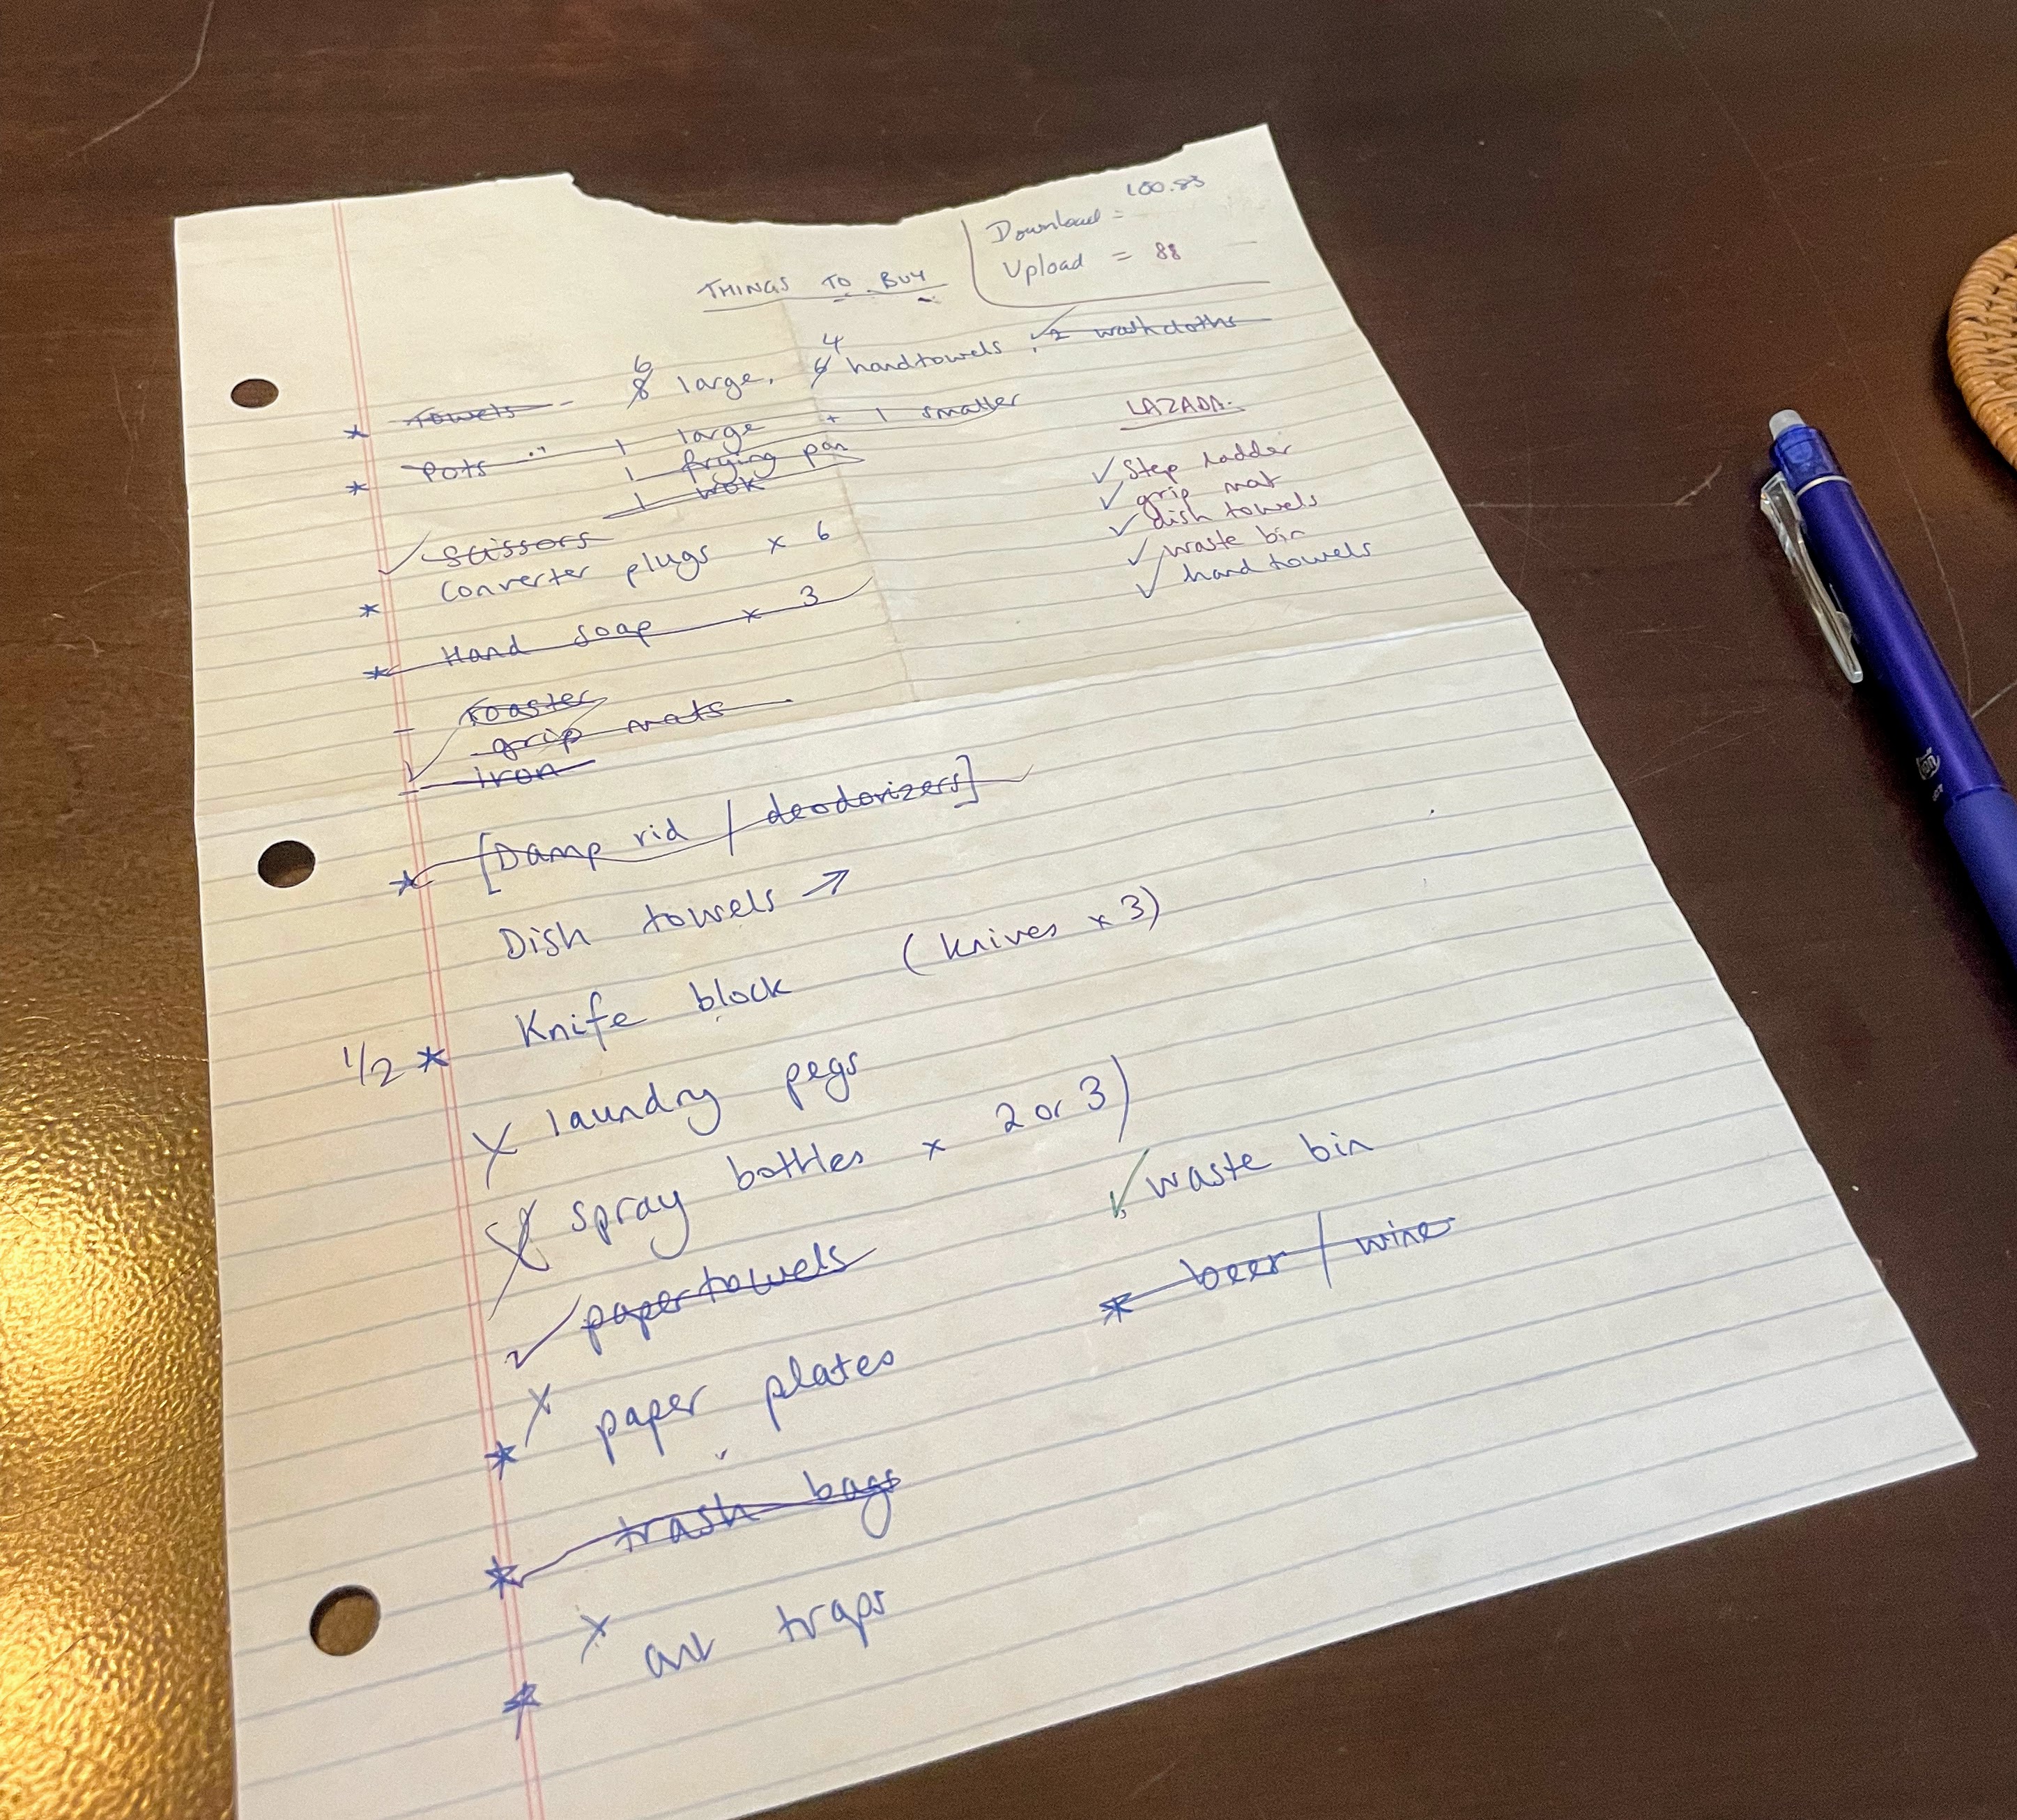 100.83
Download =
Upload = 88
THINGS TO BUY
6 4
Towels - 8 large, handtowels, 2 washcloths
* Pots :- 1 large + 1 smaller
* 1 frying pan
1 wok
LAZADA.
✓ Step ladder
✓ grip mat
✓ dish towels
✓ waste bin
✓ hand towels
✓ scissors
Converter plugs x 6
*
* Hand soap x 3
- toaster
✓ grip mats
- iron
* [Damp rid / deodorizers]
Dish towels ↗
1/2 * Knife block (knives x 3)
X laundry pegs
X spray bottles x 2 or 3)
✓ waste bin
✓ papertowels
* beer / wine
X paper plates
*
* trash bags
X ant traps
*